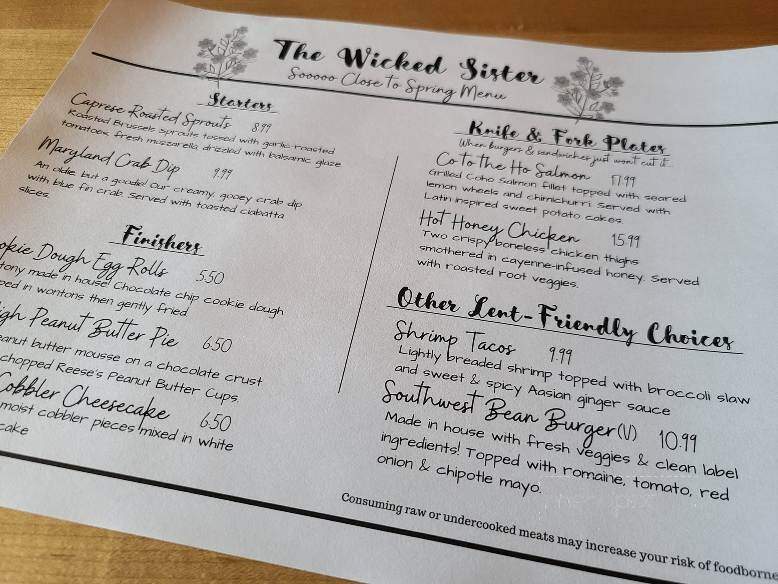 The Wicked Sister
Sooooo Close To Spring Menu
Starters
Caprese Roasted Sprouts 8.99
Roasted Brussels sprouts tossed with garlic-roasted
tomatoes, fresh mozzarella drizzled with balsamic glaze
Maryland Crab Dip 9.99
An oldie, but a goodie! Our creamy, gooey crab dip
with blue fin crab. Served with toasted ciabatta
slices.
Finishers
okie Dough Egg Rolls 5.50
tony made in house! Chocolate chip cookie dough
ped in wontons then gently fried
igh Peanut Butter Pie 6.50
eanut butter mousse on a chocolate crust
chopped Reese's Peanut Butter Cups.
Cobbler Cheesecake 6.50
moist cobbler pieces mixed in white
cake
Knife & Fork Plates
When burgers & sandwiches just won't cut it.
Co to the Ho Salmon 17.99
Grilled Coho Salmon fillet topped with seared
lemon wheels and chimichurri. Served with
Latin inspired sweet potato cakes.
Hot Honey Chicken 15.99
Two crispy boneless chicken thighs
smothered in cayenne-infused honey. Served
with roasted root veggies.
Other Lent-Friendly Choices
Shrimp Tacos 9.99
Lightly breaded shrimp topped with broccoli slaw
and sweet & spicy Aasian ginger sauce
Southwest Bean Burger (V) 10.99
Made in house with fresh veggies & clean label
ingredients! Topped with romaine, tomato, red
onion & chipotle mayo.
Consuming raw or undercooked meats may increase your risk of foodborne